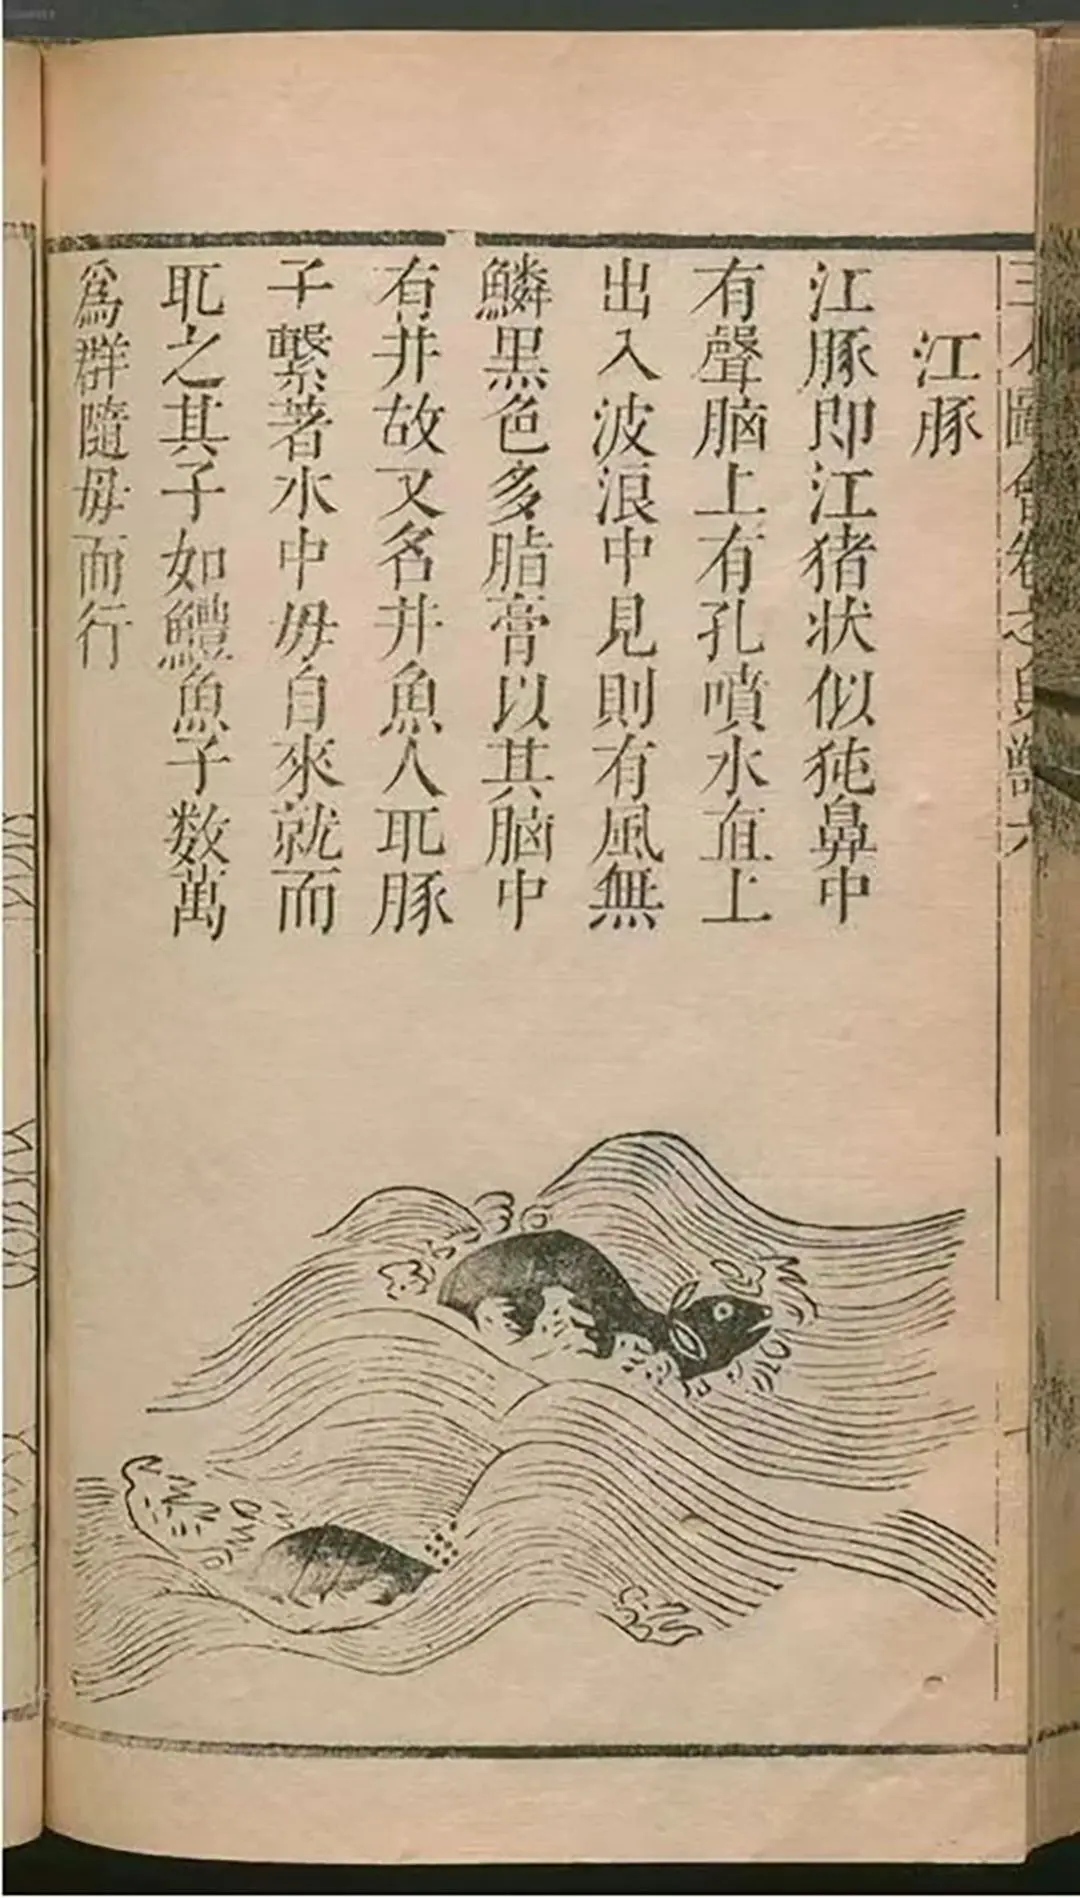 江豚
江豚即江猪状似㹠鼻中
有聲脑上有孔噴水直上
出入波浪中見則有風無
鱗黒色多脂膏以其脑中
有井故又名井魚人取豚
子繫著水中母自來就而
取之其子如鱧魚子数萬
爲群隨母而行